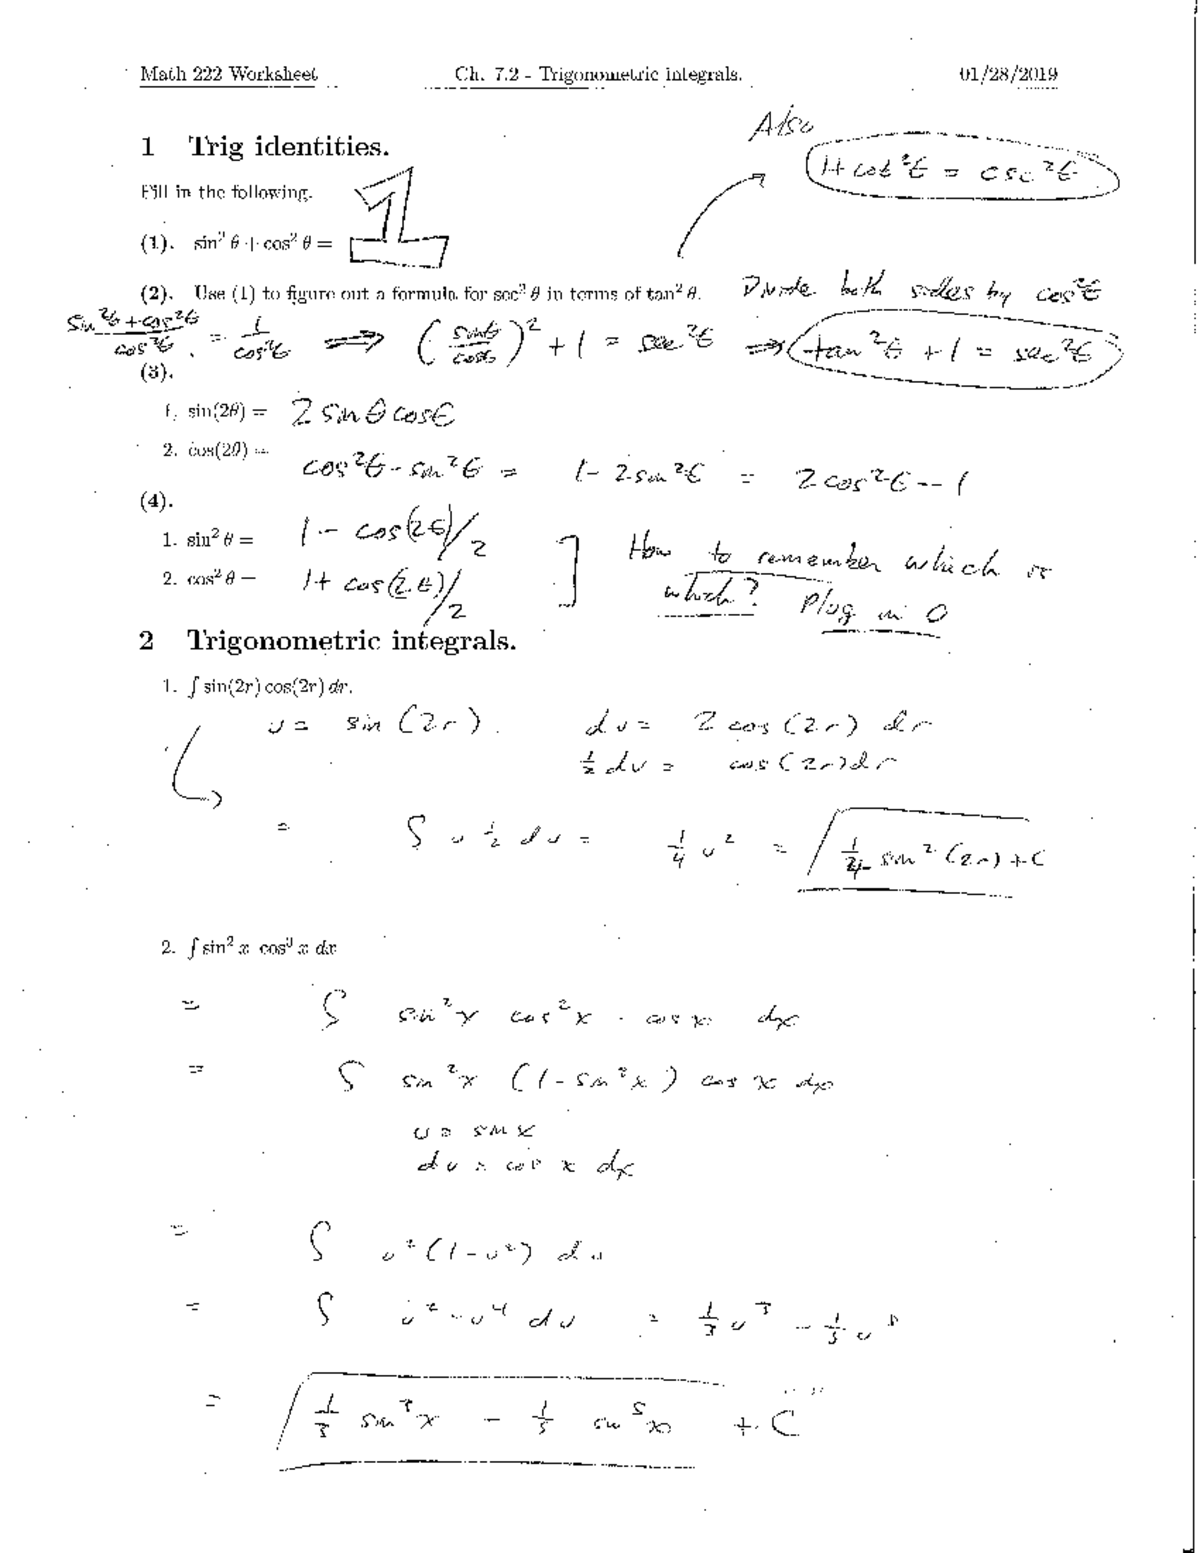 Math 222 Worksheet Ch. 7.2 - Trigonometric integrals. 01/28/2019
Also
1 Trig identities.
1 + cot²θ = csc²θ
Fill in the following.
(1). sin² θ + cos² θ = 1
(2). Use (1) to figure out a formula for sec² θ in terms of tan² θ. Divide both sides by cos²θ
(sin²θ + cos²θ)/cos²θ = 1/cos²θ ⟹ (sinθ/cosθ)² + 1 = sec²θ ⟹ tan²θ + 1 = sec²θ
(3).
1. sin(2θ) = 2 sinθ cosθ
2. cos(2θ) = cos²θ - sin²θ = 1 - 2sin²θ = 2cos²θ - 1
(4).
1. sin² θ = 1 - cos(2θ)/2
2. cos² θ = 1 + cos(2θ)/2
How to remember which is
which? Plug in 0
2 Trigonometric integrals.
1. ∫ sin(2r) cos(2r) dr.
u = sin(2r). du = 2 cos(2r) dr
½ du = cos(2r)dr
= ∫ u ½ du = ¼ u² = ¼ sin²(2r) + C
2. ∫ sin² x cos³ x dx
= ∫ sin²x cos²x · cos x dx
= ∫ sin²x (1 - sin²x) cos x dx
u = sin x
du = cos x dx
= ∫ u²(1 - u²) du
= ∫ u² - u⁴ du = ⅓ u³ - ⅕ u⁵
= ⅓ sin³x - ⅕ sin⁵x + C